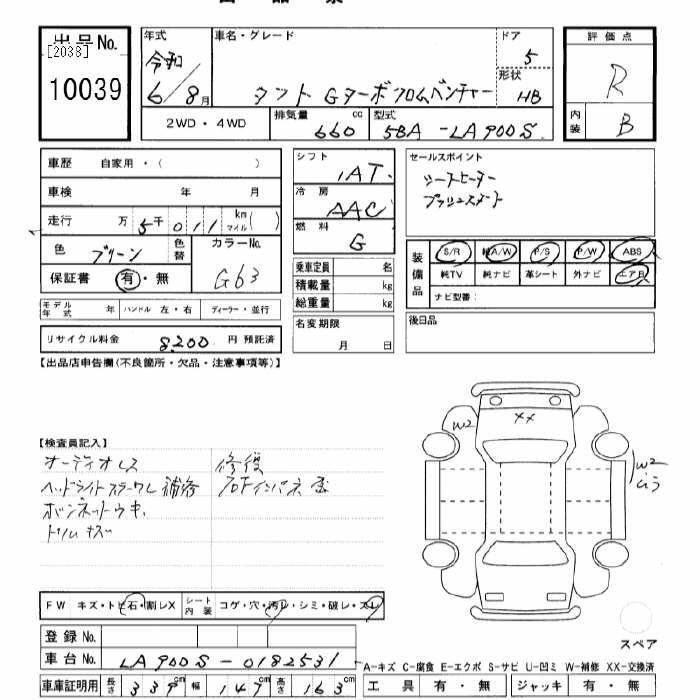 出品No.
[2038]
10039
年式
令和
6/8月
車名・グレード
タント GターボクロムベンチャーR
ドア
5
形状
HB
2WD・4WD
排気量 660 cc
型式 5BA-LA900S
評価点
R
内装 B
車歴 自家用・( )
車検 年 月
走行 万 5千 011 km マイル( )
色 グリーン
色替
カラーNo.
G63
保証書 有・無
モデル年式 年 ハンドル 左・右 ディーラー・並行
リサイクル料金 8,200 円 預託済
シフト
IAT
冷房
AAC
燃料
G
乗車定員 名
積載量 kg
総重量 kg
名変期限
月 日
セールスポイント
シートヒーター
プッシュスタート
装備品
S/R 純A/W P/S P/W ABS
純TV 純ナビ 革シート 外ナビ エアB
ナビ型番:
後日品
【出品店申告欄(不良箇所・欠品・注意事項等)】
【検査員記入】
オーディオレス
ヘッドライトステーワレ補修
ボンネットウキ
トリムキズ
修復
インパネ
XX
W2
W2
FW キズ・トビ石・割レX
シート内装 コゲ・穴・汚レ・シミ・破レ・スレ
登録No.
車台No. LA900S-0182531
車庫証明用 長さ 339cm 幅 147cm 高さ 163cm
スペア
A-キズ C-腐食 E-エクボ S-サビ U-凹ミ W-補修 XX-交換済
工具 有・無 ジャッキ 有・無